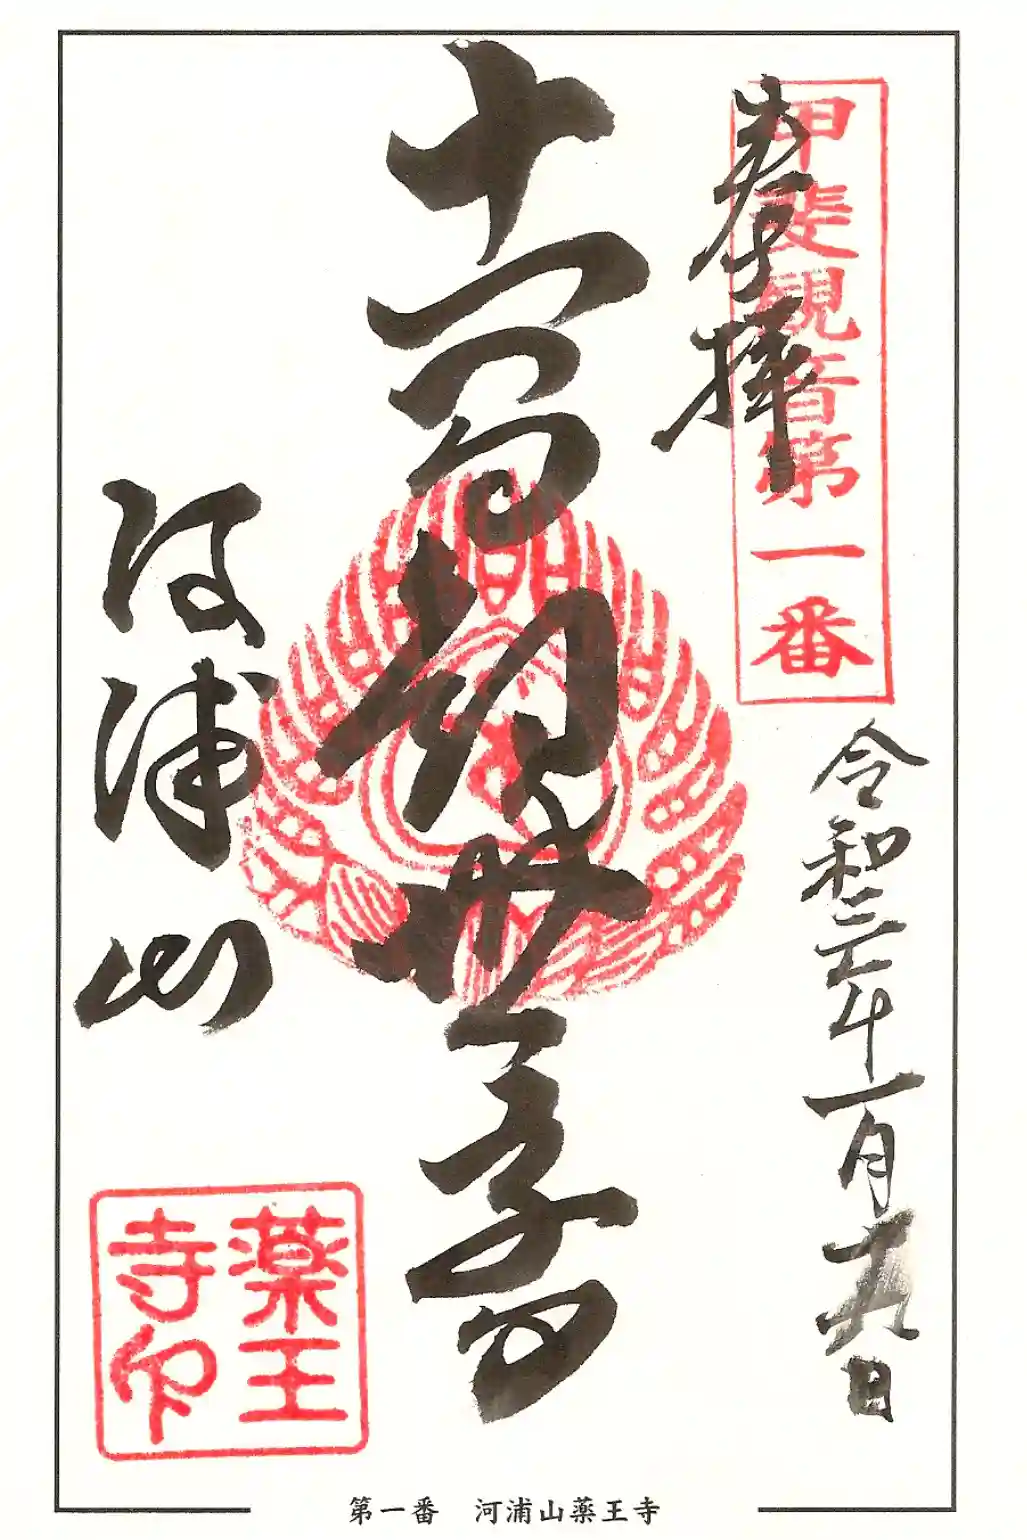 甲斐観音第一番
奉拝
令和三年一月十九日
十一面観世音
河浦山
薬王
寺印
第一番 河浦山薬王寺